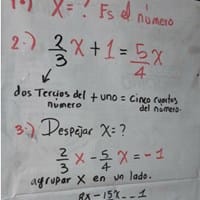 1.) X = ? Es el número
2.) 2/3 X + 1 = 5/4 X
dos Tercios del + uno = Cinco cuartos
numero del número.
3.) Despejar X=?
2/3 X - 5/4 X = -1
agrupar X en un lado.
8X - 15X -1